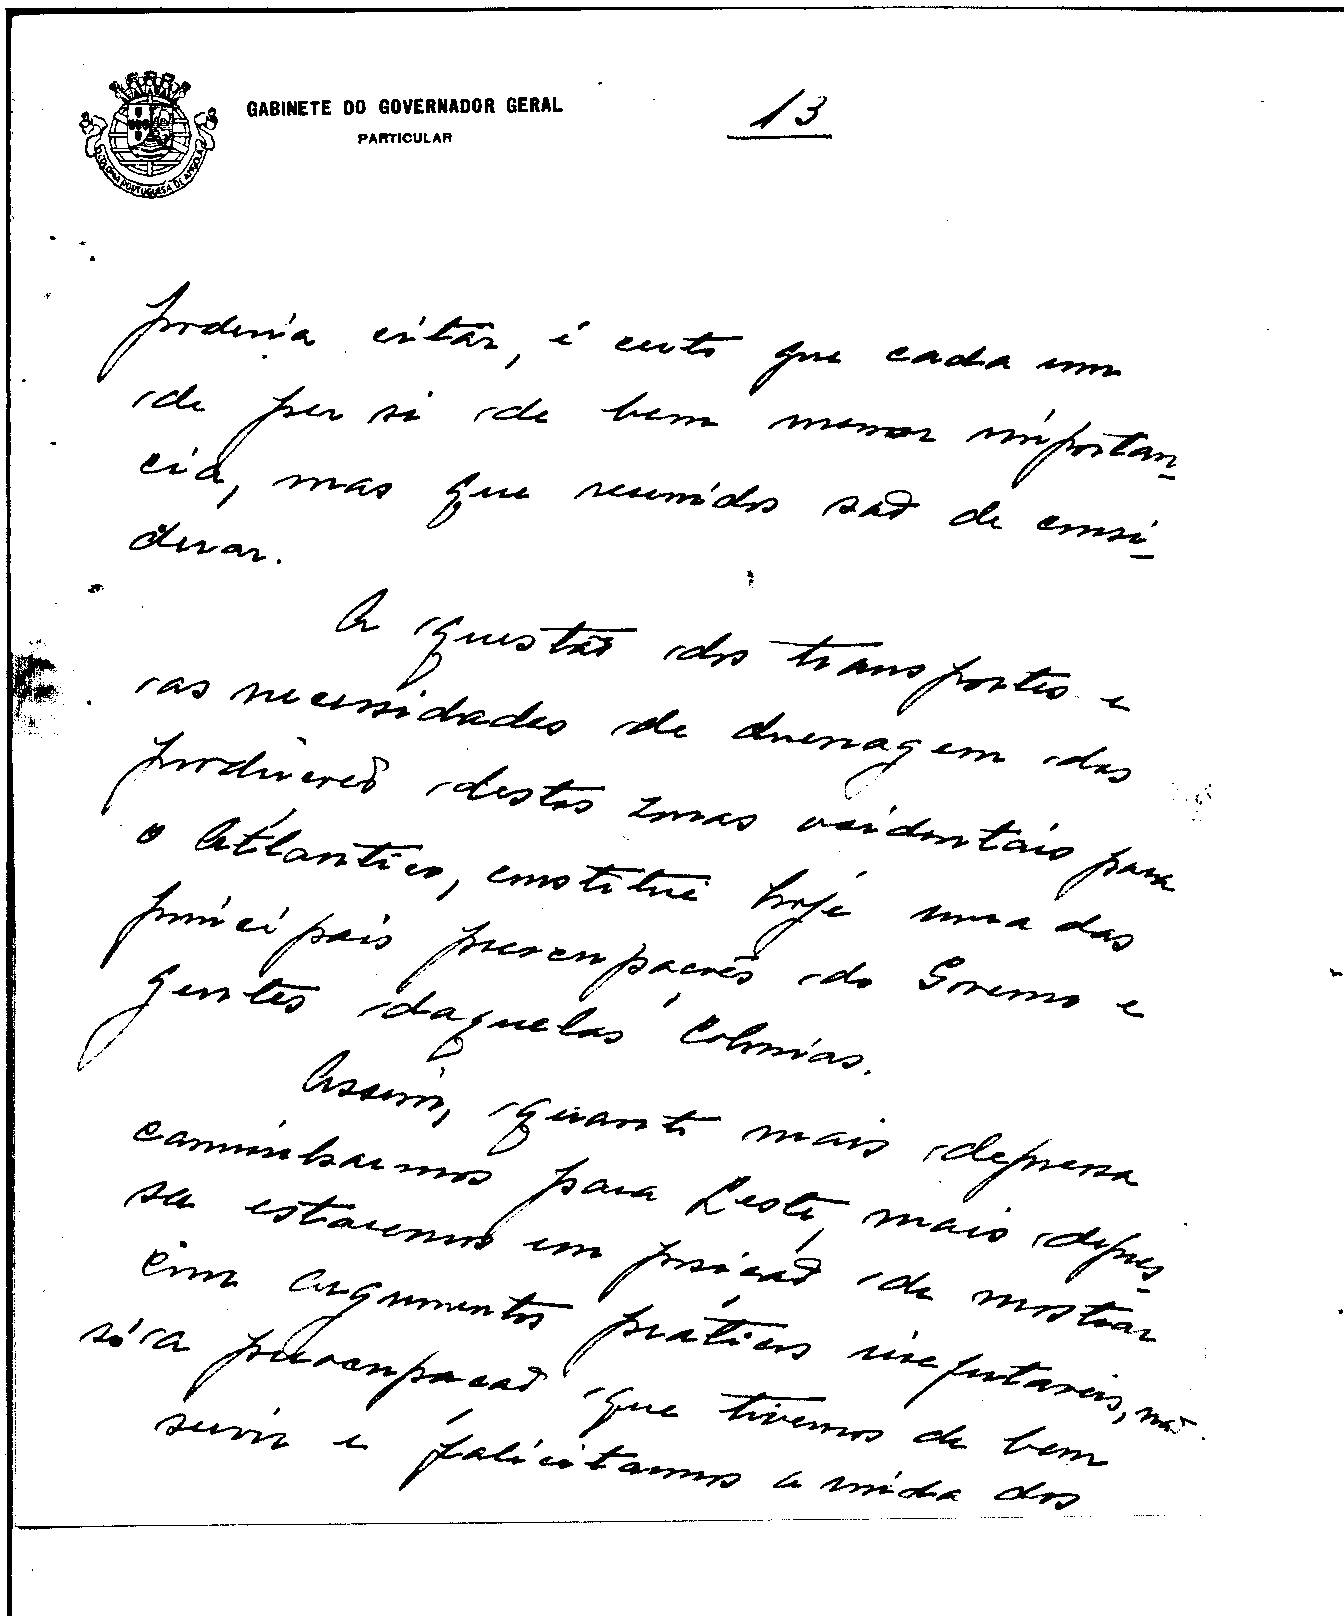 GABINETE DO GOVERNADOR GERAL
PARTICULAR
13
COLONIA PORTUGUESA DE ANGOLA
poderia citar, é certo que cada um
de per si de bem menor importan-
cia, mas que reunidos são de consi-
derar.
A questão dos transportes e
as necessidades de drenagem das
produções destas zonas ocidentais para
o Atlantico, constitue hoje uma das
principais preocupações do Governo e
gentes daquelas Colonias.
Assim, quanto mais depressa
caminharmos para Leste, mais depres-
sa estaremos em posição de mostrar
com argumentos práticos irrefutaveis, não
só a preocupação que tivemos de bem
servir e facilitarmos a vida dos